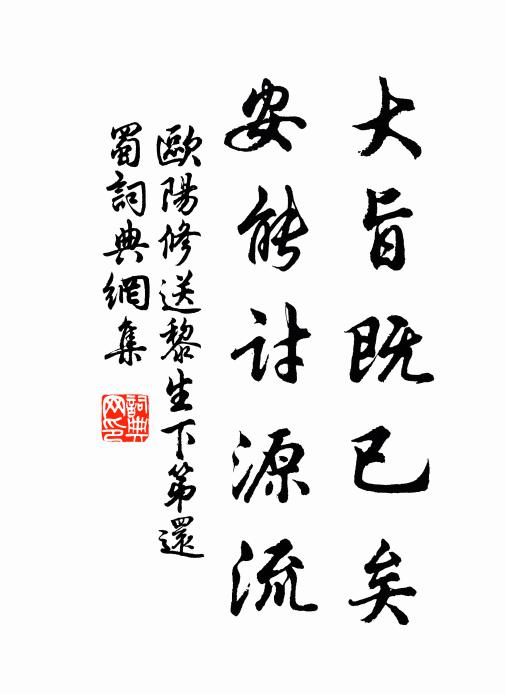 大旨既已矣
安能討源流
歐陽修送黎生下第還
蜀詞典網集
詞典網印